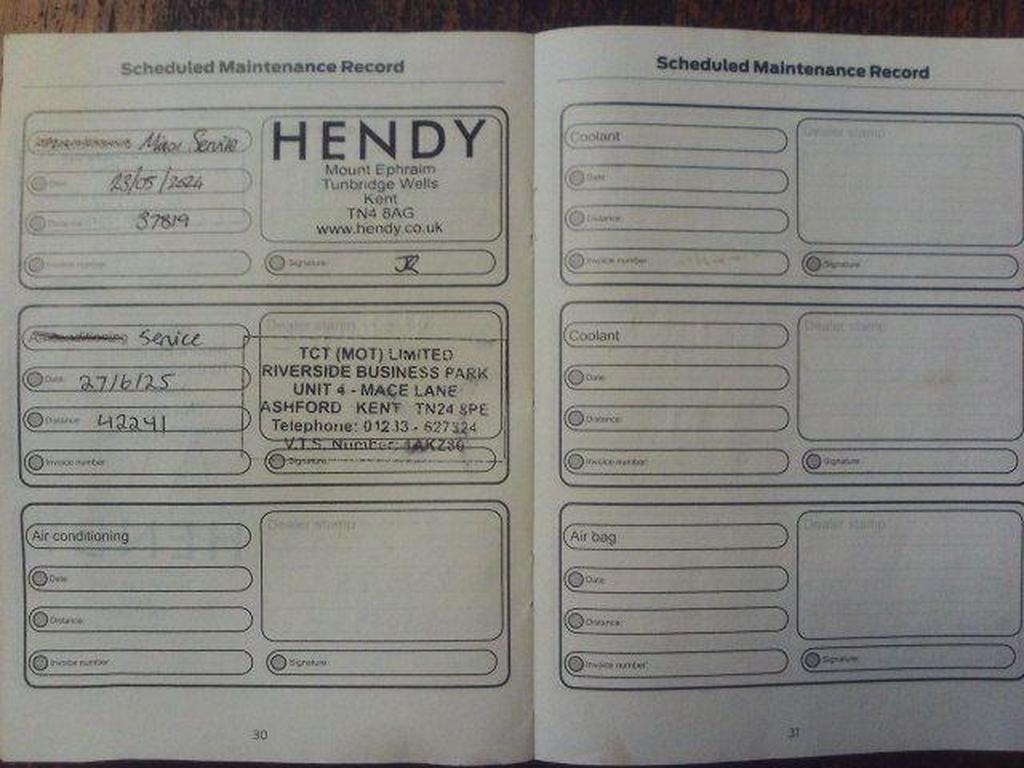 Scheduled Maintenance Record
Minor Service
Date:
23/05/2024
Distance:
37819
Invoice number:
HENDY
Mount Ephraim
Tunbridge Wells
Kent
TN4 8AG
www.hendy.co.uk
Signature:
JR
Air conditioning Service
Date: 27/6/25
Distance: 42241
Invoice number:
Dealer stamp
TCT (MOT) LIMITED
RIVERSIDE BUSINESS PARK
UNIT 4 - MACE LANE
ASHFORD KENT TN24 8PE
Telephone: 01233 - 627324
V.T.S. Number:
Signature:
Air conditioning
Date:
Distance:
Invoice number:
Dealer stamp
Signature:
30
Scheduled Maintenance Record
Coolant
Date:
Distance:
Invoice number:
Dealer stamp
Signature:
Coolant
Date:
Distance:
Invoice number:
Dealer stamp
Signature:
Air bag
Date:
Distance:
Invoice number:
Dealer stamp
Signature:
31